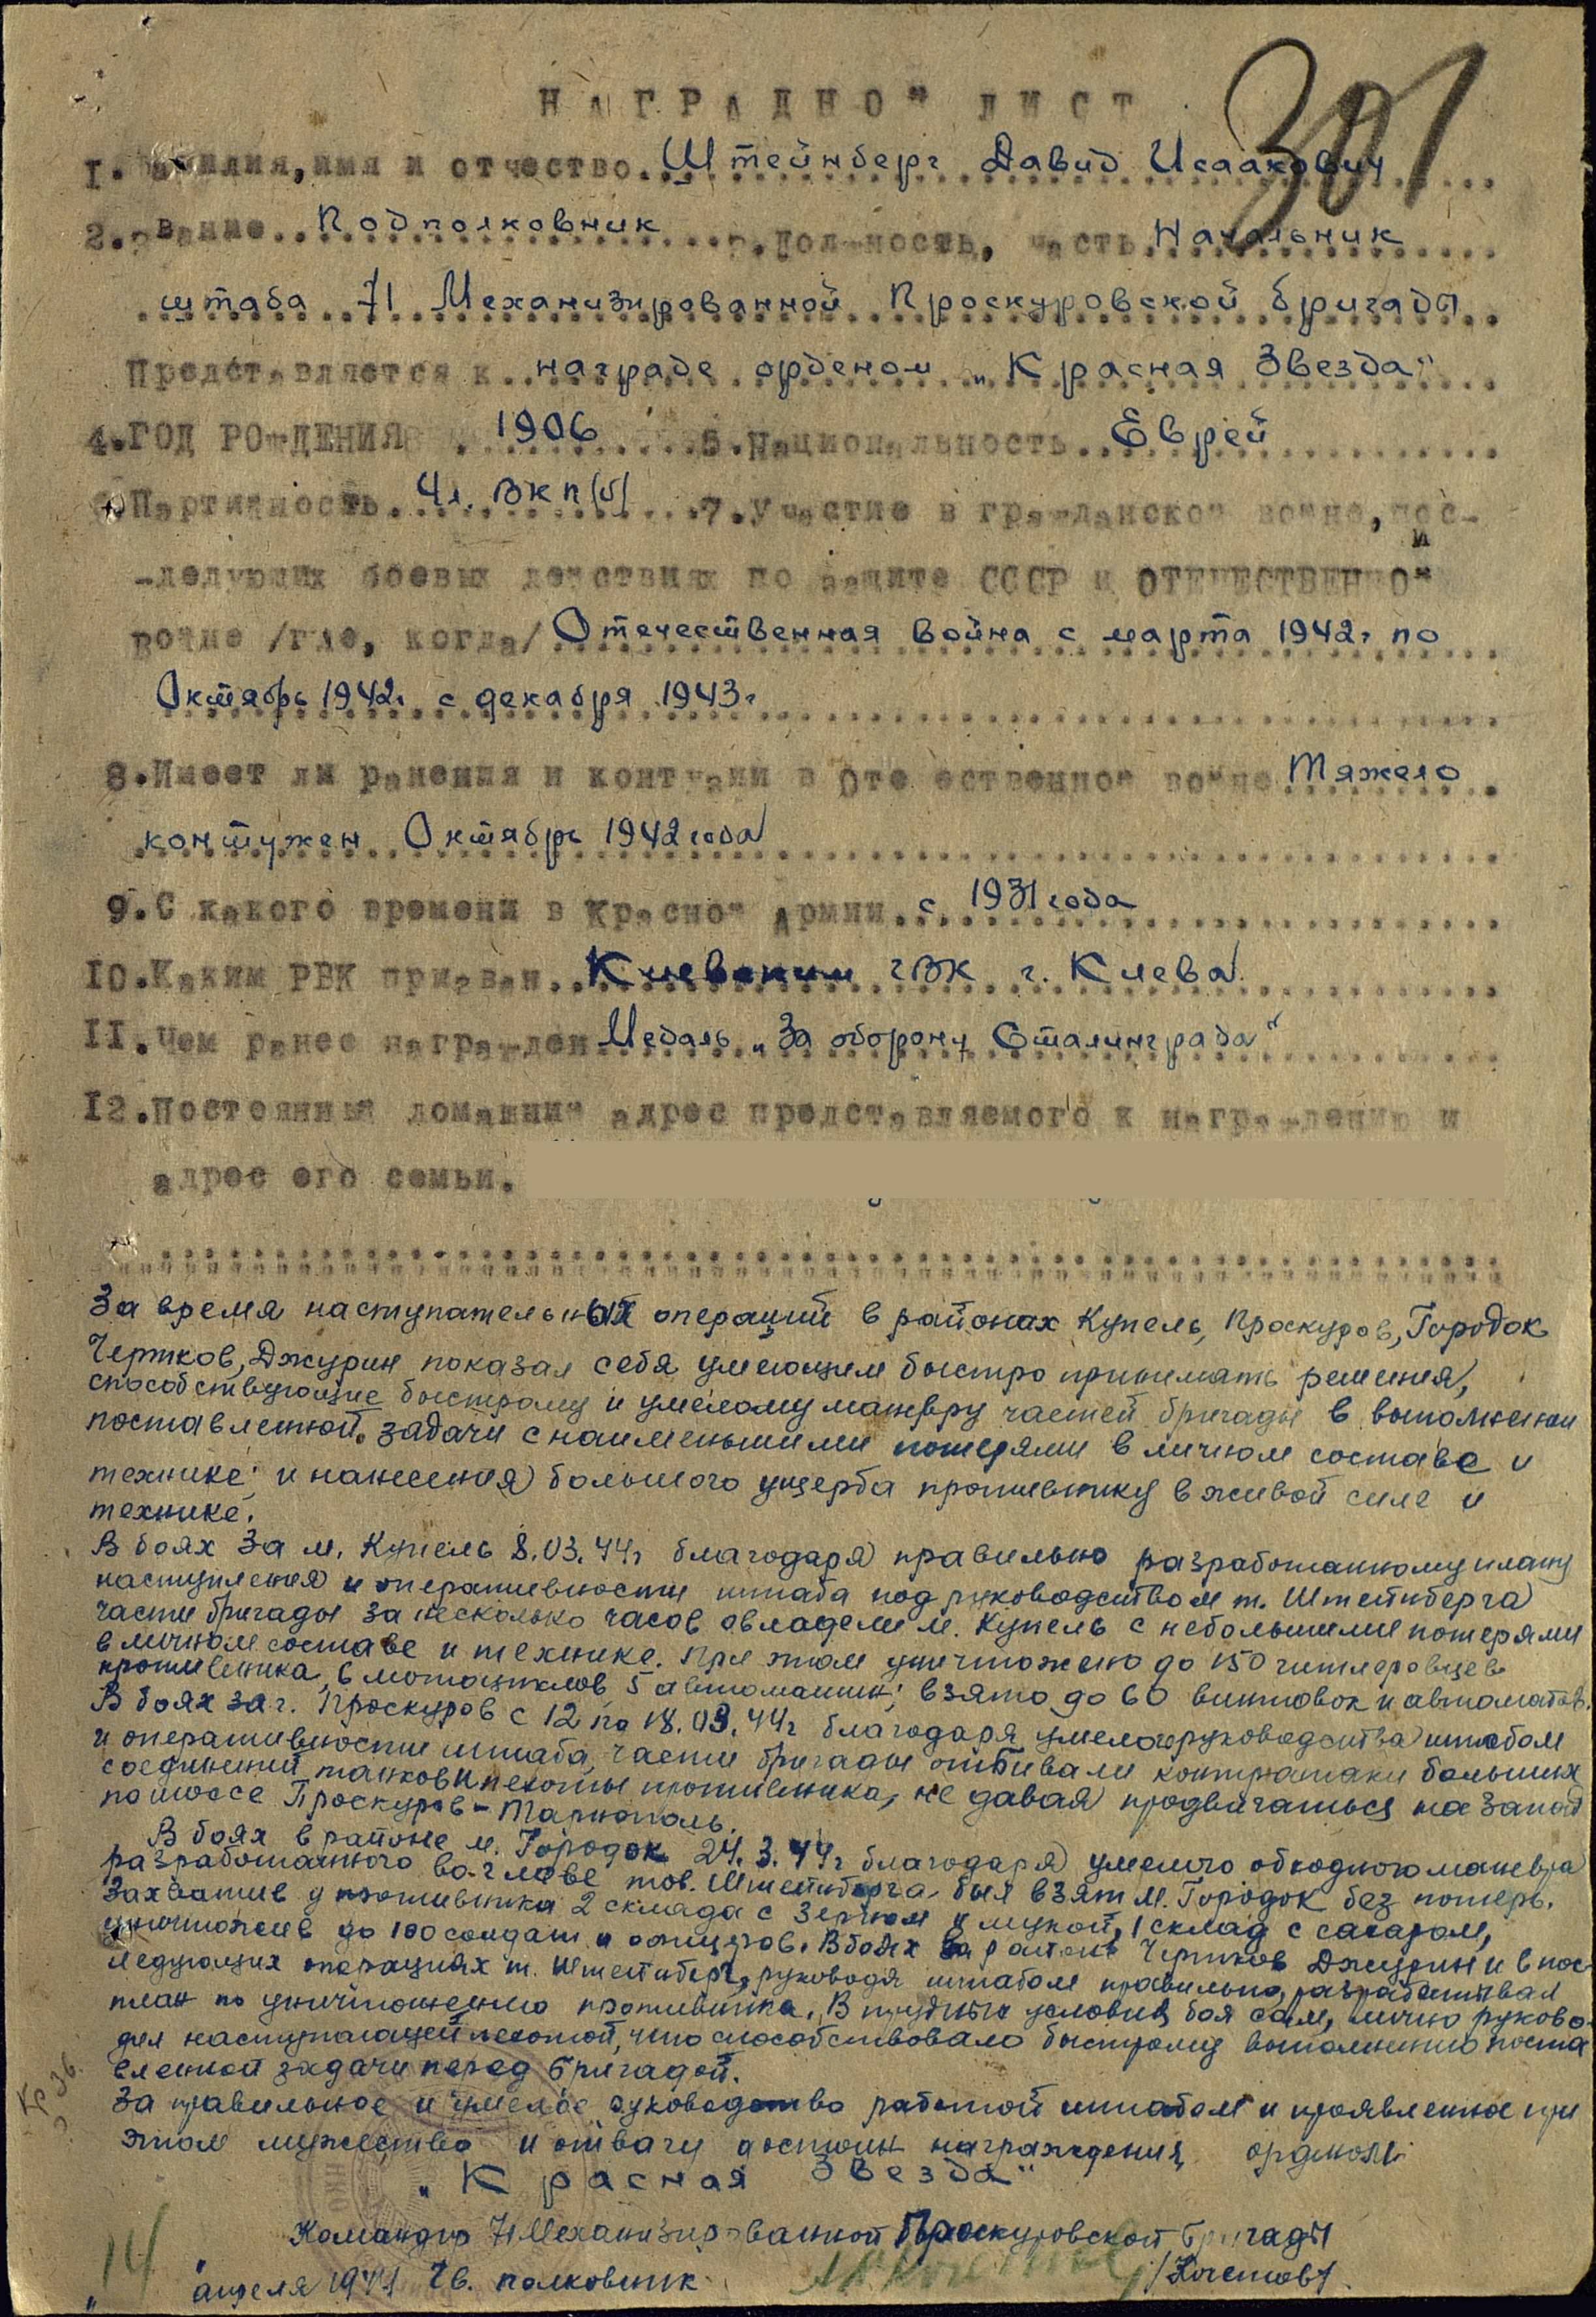 301
НАГРАДНОЙ ЛИСТ
1. Фамилия, имя и отчество Штейнберг Давид Исаакович
2. Звание Подполковник 3. Должность, часть Начальник
штаба 71 Механизированной Проскуровской бригады
Представляется к награде орденом „Красная Звезда"
4. ГОД РОЖДЕНИЯ 1906 5. Национальность Еврей
6. Партийность Чл. ВКП(б) 7. Участие в гражданской войне, пос-
-ледующих боевых действиях по защите СССР и ОТЕЧЕСТВЕННОЙ
войне /где, когда/ Отечественная война с марта 1942г по
Октябрь 1942г. с декабря 1943г
8. Имеет ли ранения и контузии в Отечественной войне Тяжело
контужен Октябрь 1942 года
9. С какого времени в Красной Армии с 1931 года
10. Каким РВК призван Киевским ГВК г. Киева
11. Чем ранее награжден Медаль „За оборону Сталинграда"
12. Постоянный домашний адрес представляемого к награждению и
адрес его семьи.
За время наступательных операций в районах Купель, Проскуров, Городок
Чертков, Джурин показал себя умеющим быстро принимать решения,
способствующие быстрому и умелому маневру частей бригады в выполнении
поставленной задачи с наименьшими потерями в личном составе и
технике и нанесения большого ущерба противнику в живой силе и
технике.
В боях за м. Купель 8.03.44г благодаря правильно разработанному плану
наступления и оперативности штаба под руководством т. Штейнберга
части бригады за несколько часов овладели м. Купель с небольшими потерями
в личном составе и технике. При этом уничтожено до 150 гитлеровцев
противника, 6 мотоциклов, 5 автомашин; взято до 60 винтовок и автоматов.
В боях за г. Проскуров с 12 по 18.03.44г благодаря умелого руководства штабом
и оперативности штаба, части бригады отбивали контратаки больших
соединений танков и пехоты противника, не давая продвигаться на запад
по шоссе Проскуров - Тарнополь.
В боях в районе м. Городок 24.3.44г благодаря умелого обходного маневра
разработанного во главе тов. Штейнберга был взят м. Городок без потерь.
Захватив у противника 2 склада с зерном и мукой, 1 склад с сахаром,
уничтожив до 100 солдат и офицеров. В боях за район Чертков Джурин и в пос-
ледующих операциях т. Штейнберг, руководя штабом правильно разрабатывал
план по уничтожению противника. В трудных условиях боя сам, лично руково-
дил наступающей пехотой, что способствовало быстрому выполнению поста
вленной задачи перед бригадой.
За правильное и умелое руководство работой штабом и проявленное при
этом мужество и отвагу достоин награждения орденом
„Красная Звезда"
Командир 71 Механизированной Проскуровской бригады
14 апреля 1944 Гв. полковник